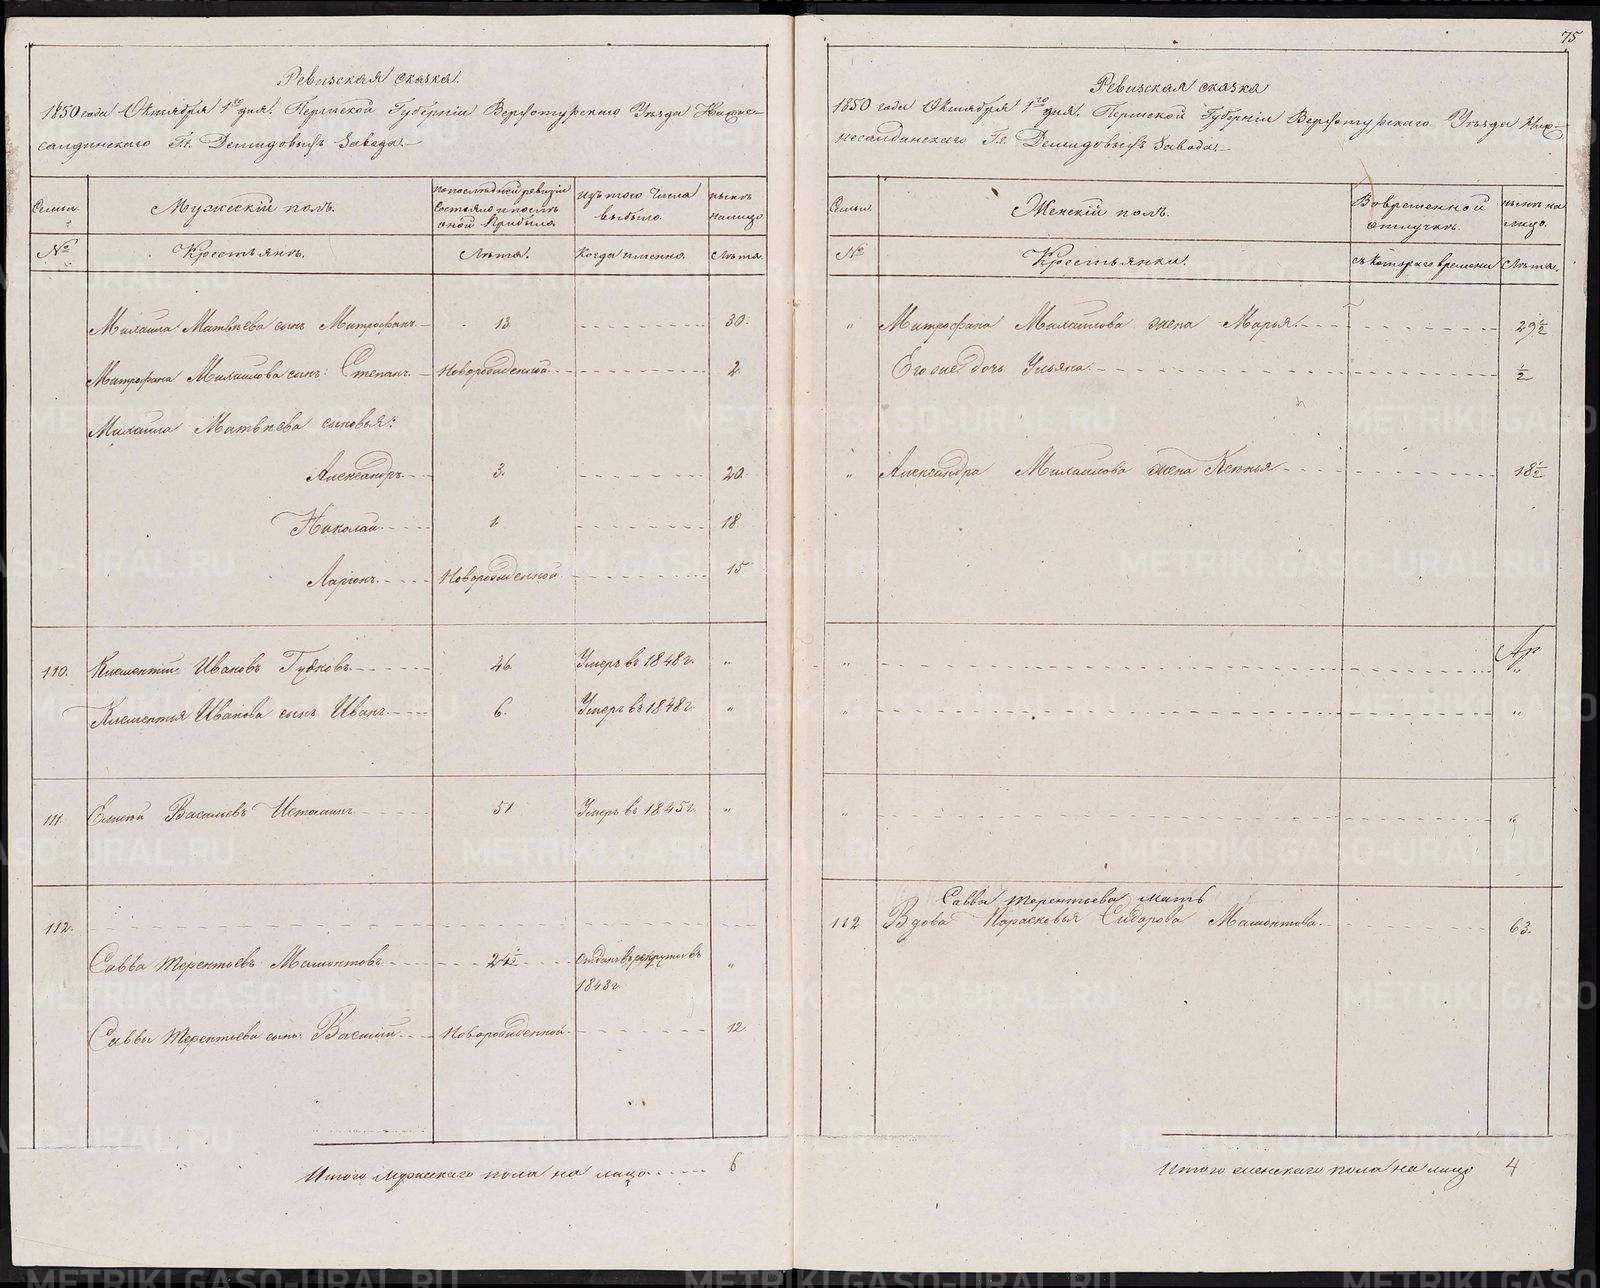 75
Ревизская сказка.
1850 года Октября 1го дня. Пермской Губерніи Верхотурскаго Уѣзда Нижне-
салдинскаго Гг. Демидовыхъ Завода.
Семьи. Мужескій полъ. По последней ревизіи состояло и послѣ оной прибыло Изъ того числа выбыло. Нынѣ на лицо
№ Крестьянѣ. Лѣта. Когда именно. Лѣта.
Михаила Матвѣева сынъ Митрофанъ 13 30.
Митрофана Михаилова сынъ: Степанъ. Новорожденной 2
Михаила Матвѣева сыновья:
Александръ 3. 20
Николай 1. 18
Ларіонъ. Новорожденной 15
110. Климентій Ивановъ Гудковъ 46 Умеръ въ 1848 г. "
Климентья Иванова сынъ Иванъ 6. Умеръ въ 1848 г. "
111. Елисѣй Васильевъ Истоминъ 51 Умеръ въ 1845 г. "
112.
Савва Терентьевъ Мамонтовъ 24½ Отданъ въ рекруты въ 1843 г. "
Саввы Терентьева сынъ: Василій. Новорожденной 12
Итого мужескаго пола на лицо 6
Ревизская сказка
1850 года Октября 1го дня. Пермской Губерніи Верхотурскаго Уѣзда Ниж-
несалдинскаго Гг. Демидовыхъ Завода.
Семьи. Женскій полъ. Во временной отлучкѣ. Нынѣ на лицо.
№ Крестьянки. Съ котораго времени Лѣта.
" Митрофана Михаилова жена Марья. 29½
Его же дочь Ульяна ½
" Александра Михаилова жена Ксенья 18½
" "
" "
" "
Саввы Терентьева мать
112 Вдова Парасковья Сидорова Мамонтова. 63.
Итого женскаго пола на лицо 4
METRIKI.GASO-URAL.RU